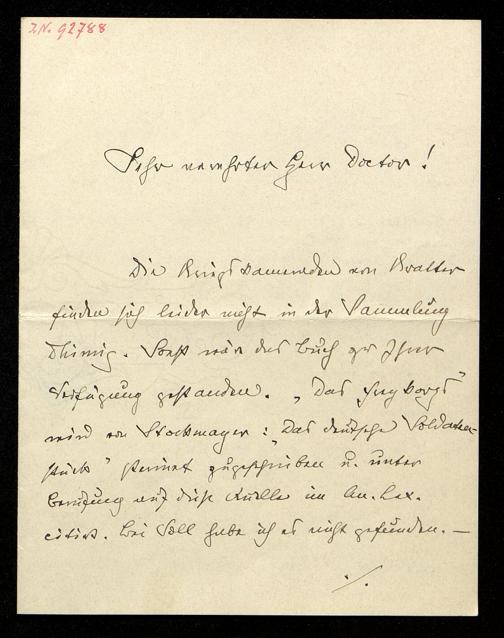 I.N. 92788
Sehr verehrter Herr Doctor!
Die Kriegskameraden von Kratter
finden sich leider nicht in der Sammlung
Thimig. Sonst wäre das Buch zu Ihrer
Verfügung gestanden. „Das
wird von Stockmayer: „Das deutsche Soldaten-
stück" zugeschrieben u. unter
Berufung auf diese Quelle im
citirt. Bei habe ich es nicht gefunden. —
./.